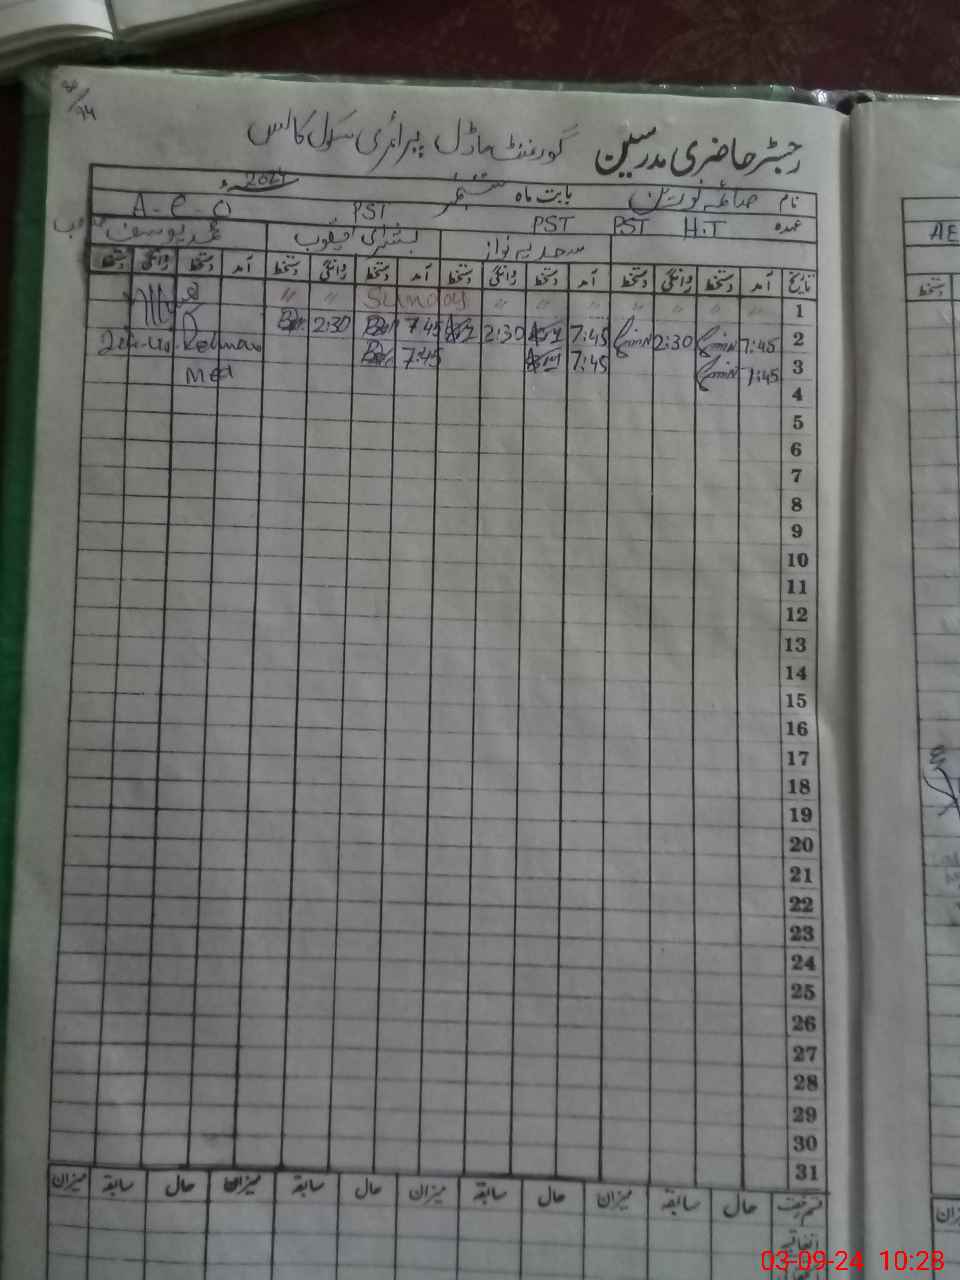 رجسٹر حاضری مدرسین گورنمنٹ ماڈل پرائمری سکول کالس
نام صائمہ نورین بابت ماہ ستمبر 2024ء
عہدہ H.T PST PST PST A-e-o
بشریٰ یعقوب محمد یوسف
تاریخ آمد دستخط روانگی دستخط آمد دستخط روانگی دستخط آمد دستخط روانگی دستخط آمد دستخط روانگی دستخط
1 " " " " " " " " Sunday " "
2 7:45 2:30 7:45 2:30 7:45 2:30
3 7:45 7:45 7:45 Rehman
4 Med
5
6
7
8
9
10
11
12
13
14
15
16
17
18
19
20
21
22
23
24
25
26
27
28
29
30
31
قسم رخصت حال سابقہ میزان حال سابقہ میزان حال سابقہ میزان حال سابقہ میزان
اتفاقیہ
AE
دستخط
میزان
03-09-24 10:28